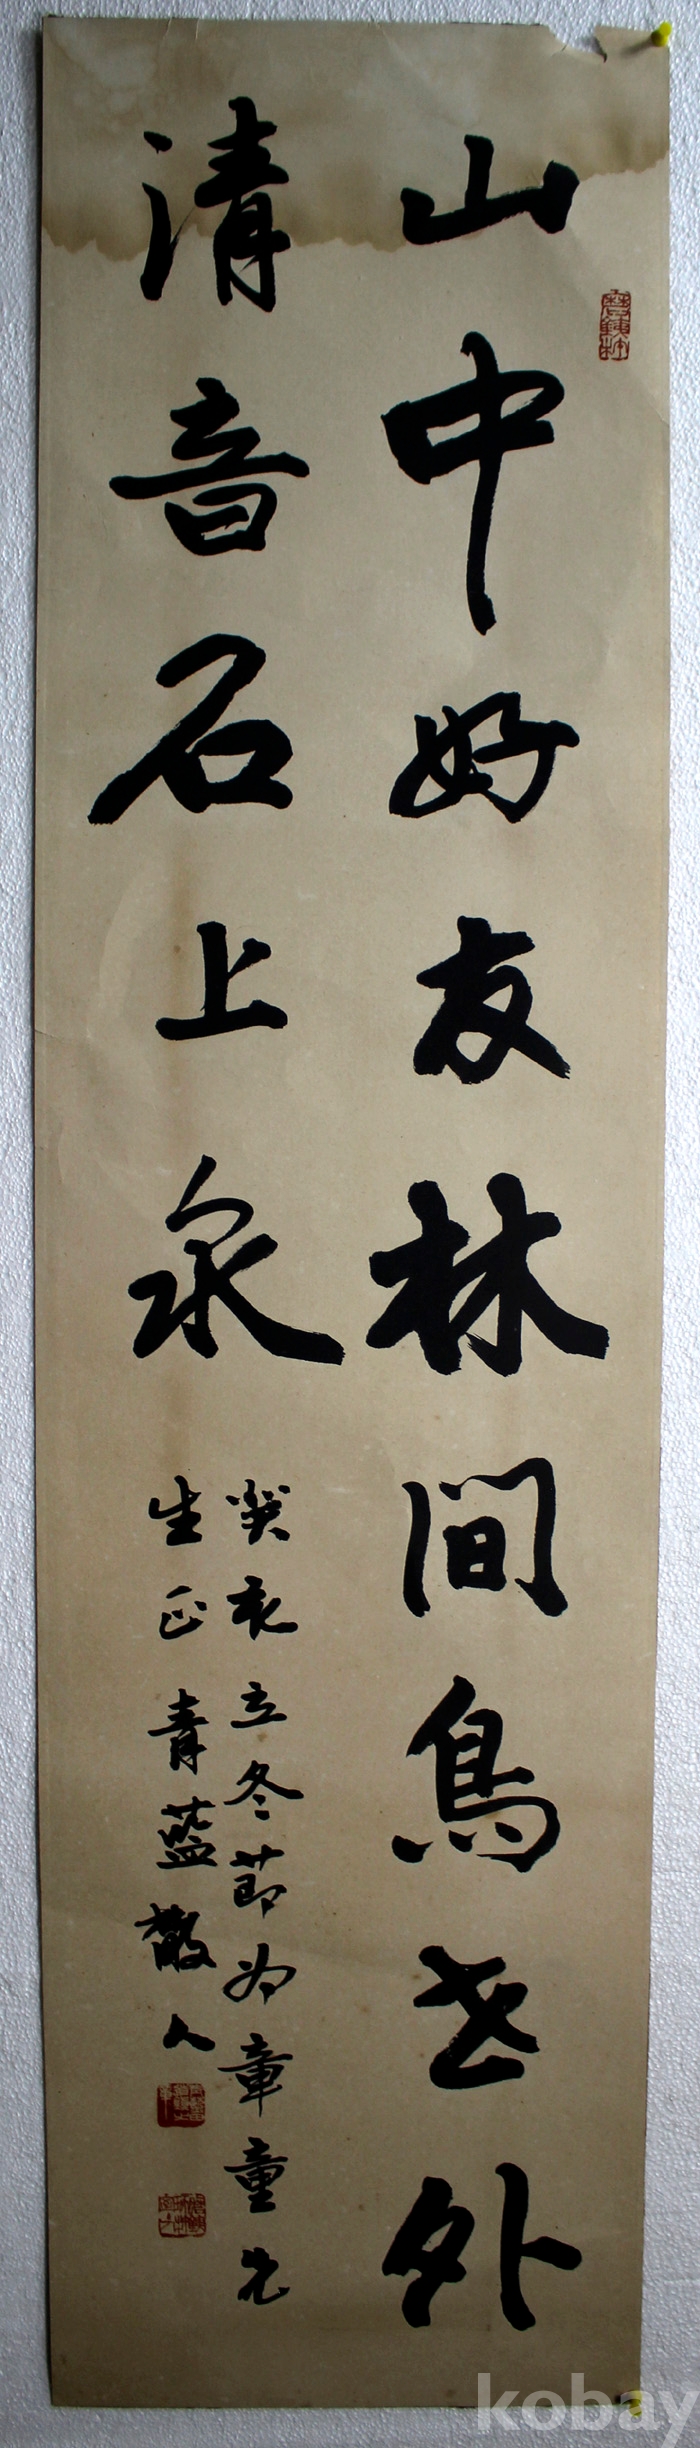 山中好友林間鳥世外
清音石上泉
癸亥立冬節為章童先
生正 青藍散人
kobay